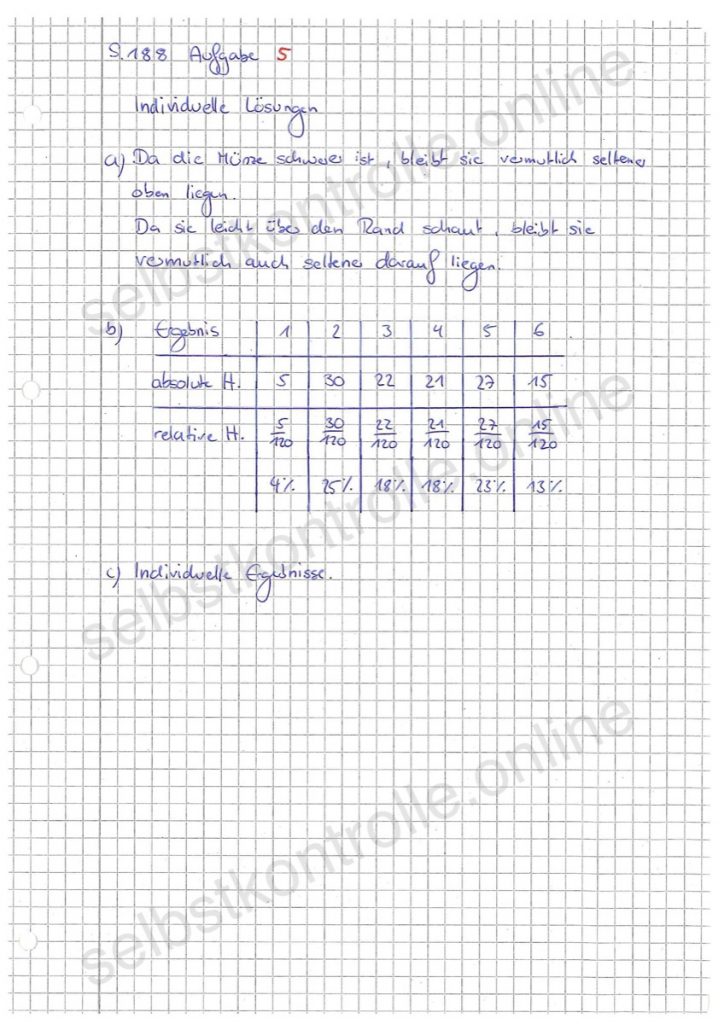 S.188 Aufgabe 5
Individuelle Lösungen
a) Da die Münze schwerer ist, bleibt sie vermutlich seltener
oben liegen.
Da sie leicht über den Rand schaut, bleibt sie
vermutlich auch seltener darauf liegen.
b) Ergebnis 1 2 3 4 5 6
absolute H. 5 30 22 21 27 15
relative H. 5/120 30/120 22/120 21/120 27/120 15/120
4% 25% 18% 18% 23% 13%
c) Individuelle Ergebnisse.
selbstkontrolle.online
selbstkontrolle.online
selbstkontrolle.online